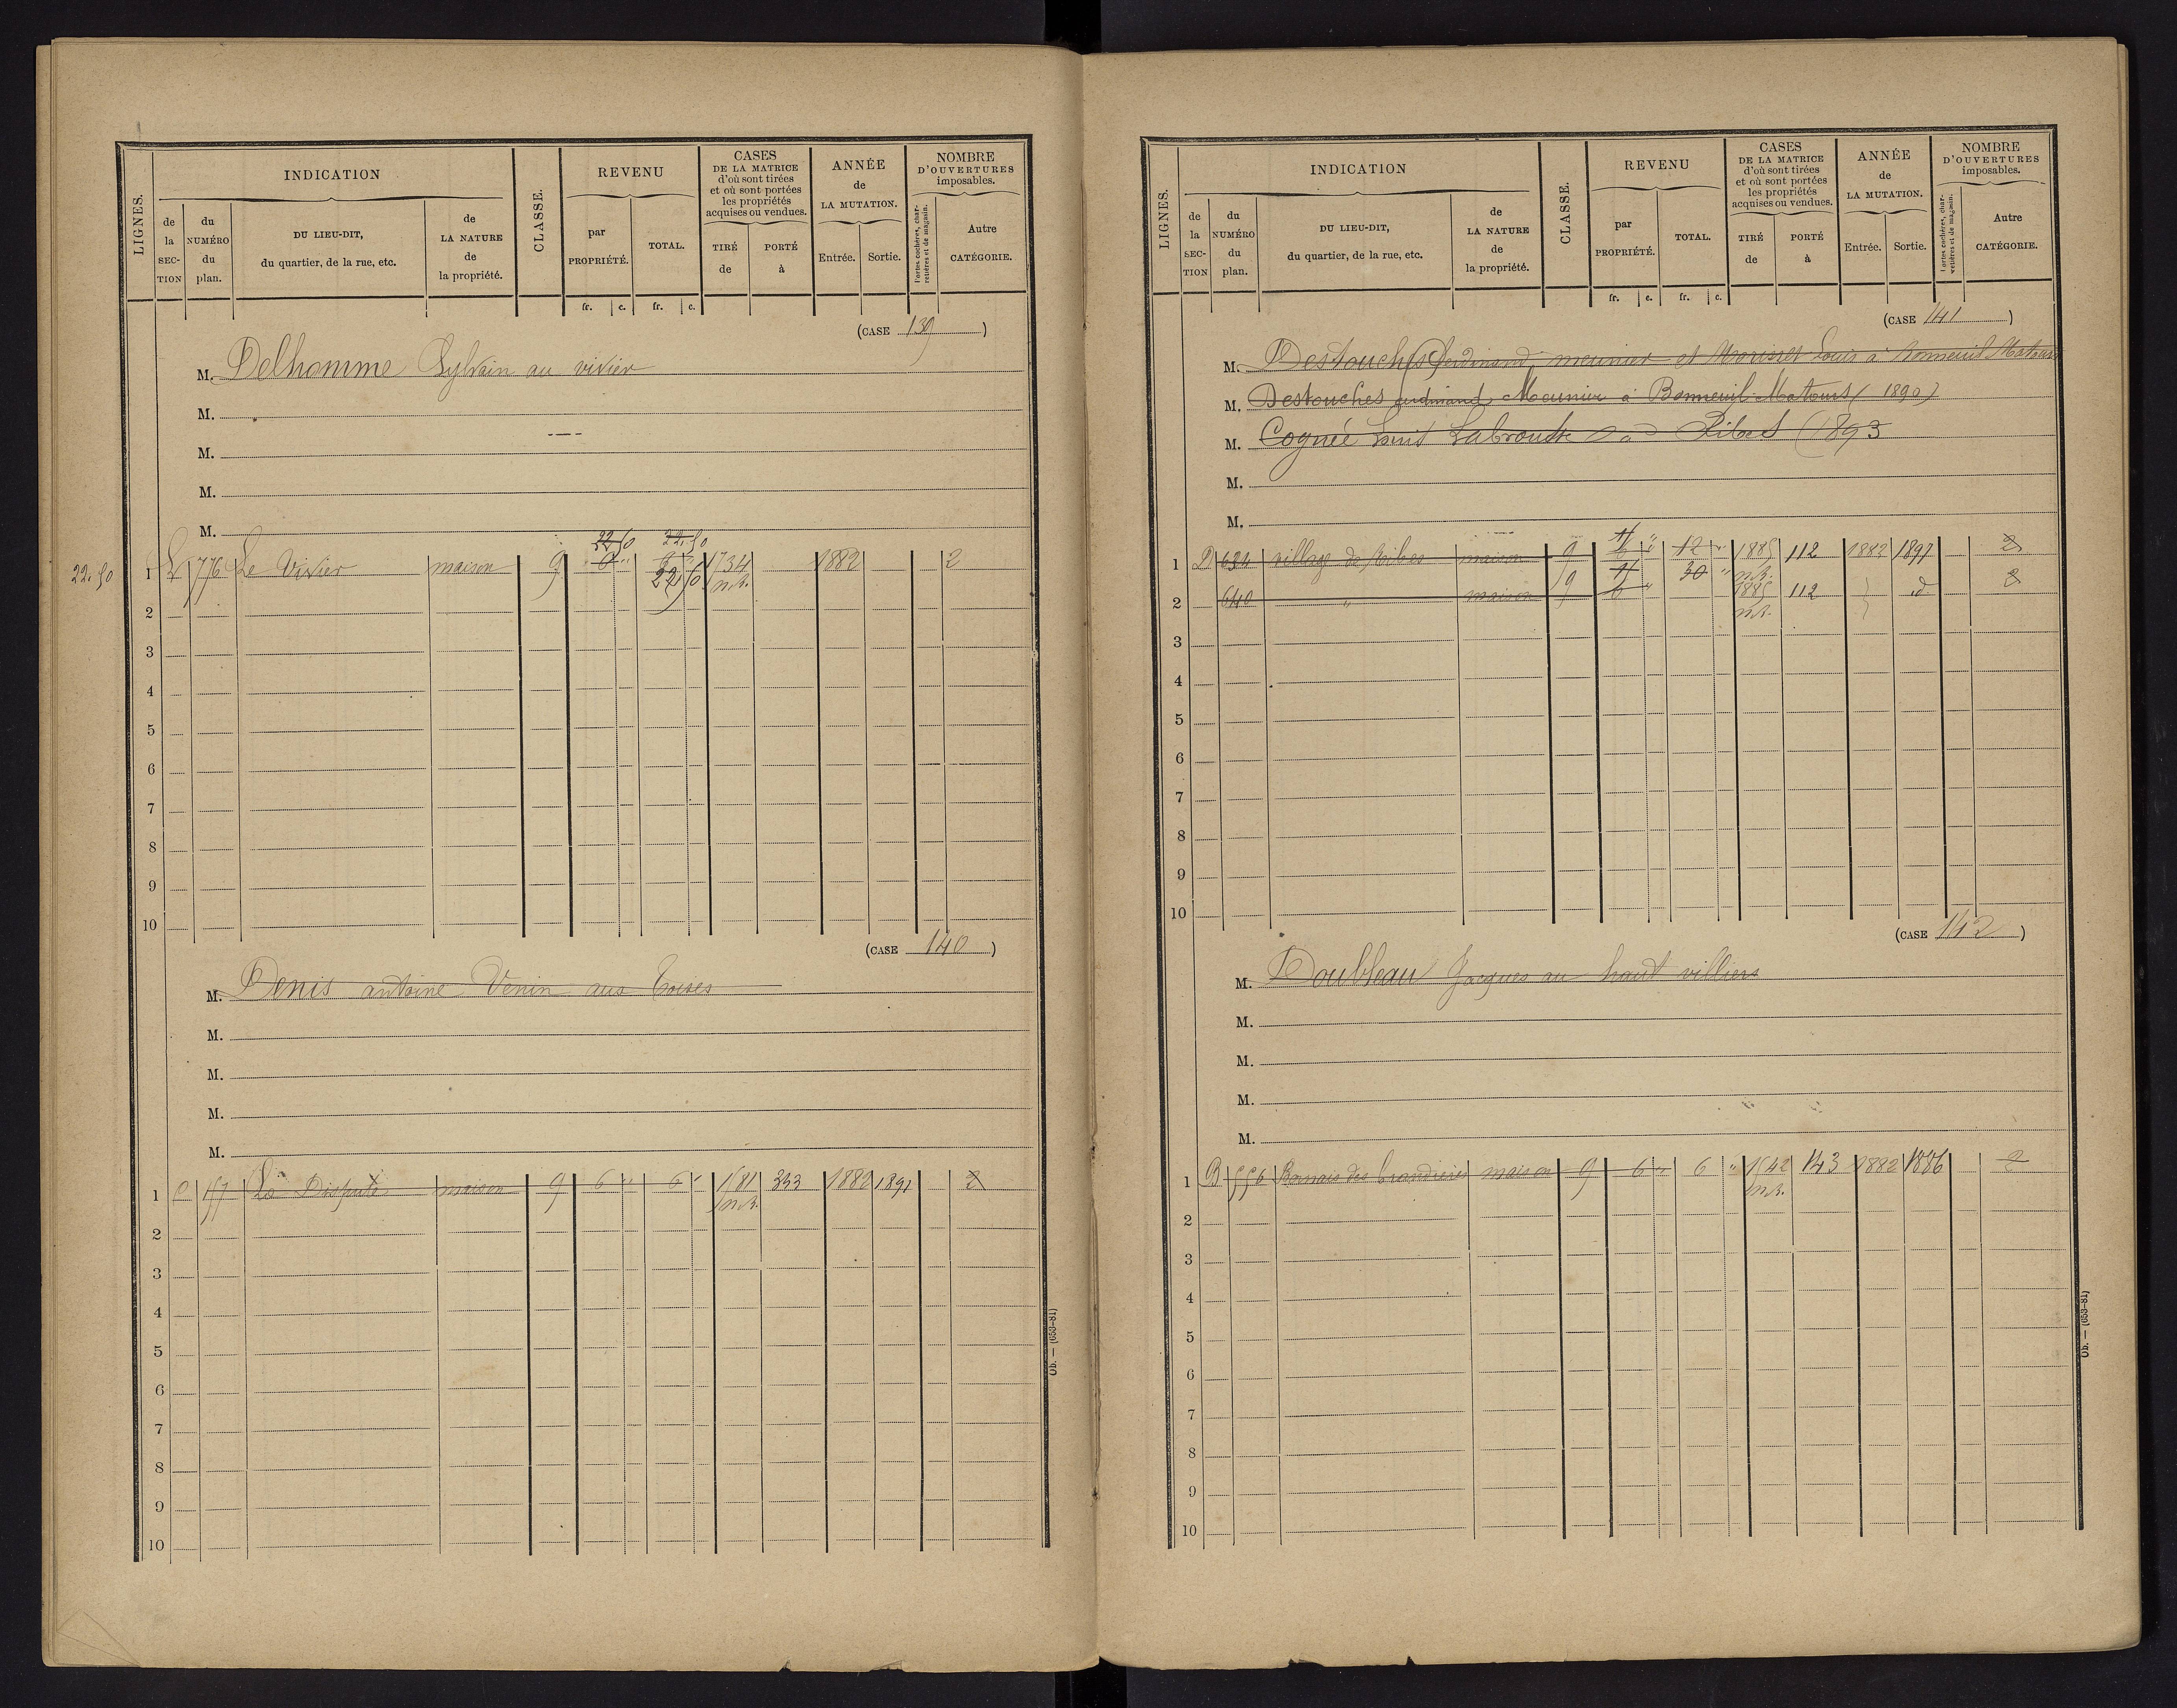 LIGNES.
INDICATION
de la SECTION
du NUMÉRO du plan.
DU LIEU-DIT, du quartier, de la rue, etc.
de LA NATURE de la propriété.
CLASSE.
REVENU
par PROPRIÉTÉ.
TOTAL.
CASES DE LA MATRICE d'où sont tirées et où sont portées les propriétés acquises ou vendues.
TIRÉ de
PORTÉ à
ANNÉE de LA MUTATION.
Entrée.
Sortie.
NOMBRE D'OUVERTURES imposables.
Portes cochères, charretières et de magasin.
Autre CATÉGORIE.
fr. c. fr. c.
(CASE 139)
M. Delhomme Sylvain au vivier
M.
M.
M.
M.
22 50 22.50
22.50 1 776 Le Vivier maison 9 734 1882 2
22.50 n.R.
2
3
4
5
6
7
8
9
10
(CASE 140)
M. Denis antoine Venin aux Coises
M.
M.
M.
M.
1 C 157 La Dispute maison 9 6 " 6 " 1581 333 1882 1891 2
n.R.
2
3
4
5
6
7
8
9
10
Ob. — (653-81)
LIGNES.
INDICATION
de la SECTION
du NUMÉRO du plan.
DU LIEU-DIT, du quartier, de la rue, etc.
de LA NATURE de la propriété.
CLASSE.
REVENU
par PROPRIÉTÉ.
TOTAL.
CASES DE LA MATRICE d'où sont tirées et où sont portées les propriétés acquises ou vendues.
TIRÉ de
PORTÉ à
ANNÉE de LA MUTATION.
Entrée.
Sortie.
NOMBRE D'OUVERTURES imposables.
Portes cochères, charretières et de magasin.
Autre CATÉGORIE.
fr. c. fr. c.
(CASE 141)
M. Destouches (Ferdinand meunier et Morisset Louis à Bonneuil Matours
M. Destouches ferdinand Meunier à Bonneuil-Matours (1890)
M. Cognée Louis Labrousse à Ribes (1893
M.
M.
1 D 634 village de Ribes maison 9 6 " 12 " 1885 112 1882 1897 2
n.R.
2 640 " maison 9 6 " 30 " 1885 112 d 2
n.R.
3
4
5
6
7
8
9
10
(CASE 142)
M. Doubleau Jacques au haut villiers
M.
M.
M.
M.
1 B 556 des brandières maison 9 6 " 6 " 1542 143 1882 1886 2
n.R.
2
3
4
5
6
7
8
9
10
Ob. — (653-81)